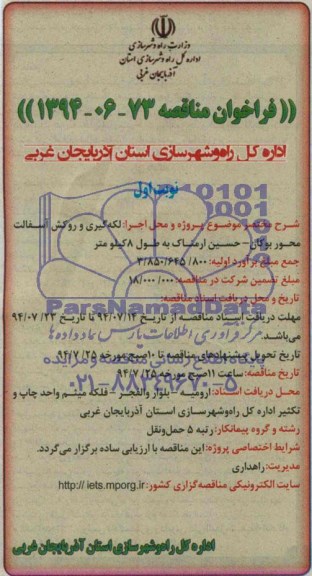 وزارت راه و شهرسازی
اداره کل راه و شهرسازی استان
آذربایجان غربی
(( فراخوان مناقصه ۷۳-۰۶-۱۳۹۴ ))
اداره کل راه‌وشهرسازی استان آذربایجان غربی
نوبت اول
شرح مختصر موضوع پروژه و محل اجرا: لکه‌گیری و روکش آسفالت
محور بوکان - حسین ارمناک به طول ۸کیلو متر
جمع مبلغ برآورد اولیه: ۳/۸۵۰/۶۴۵/۸۰۰
مبلغ تضمین شرکت در مناقصه: ۱۸/۰۰۰/۰۰۰
تاریخ و محل دریافت اسناد مناقصه:
مهلت دریافت اسناد مناقصه از تاریخ ۹۴/۰۷/۱۴ تا تاریخ ۹۴/۰۷/۲۳
می‌باشد.
تاریخ تحویل پیشنهادهای مناقصه تا ۱۰صبح مورخه ۹۴/۷/۲۵
تاریخ مناقصه: ساعت ۱۱صبح مورخه ۹۴/۷/۲۵
محل دریافت اسناد: ارومیه - بلوار والفجر - فلکه میثم واحد چاپ و
تکثیر اداره کل راه‌وشهرسازی استان آذربایجان غربی
رشته و گروه پیمانکار: رتبه ۵ حمل‌ونقل
شرایط اختصاصی پروژه: این مناقصه با ارزیابی ساده برگزار می‌گردد.
مدیریت: راهداری
سایت الکترونیکی مناقصه‌گزاری کشور: http:// iets.mporg.ir
اداره کل راه‌وشهرسازی استان آذربایجان غربی
ParsNamadData
مرکز فرآوری اطلاعات پارس نماد داده‌ها
۰۲۱-۸۸۳۴۹۶۷۰-۵